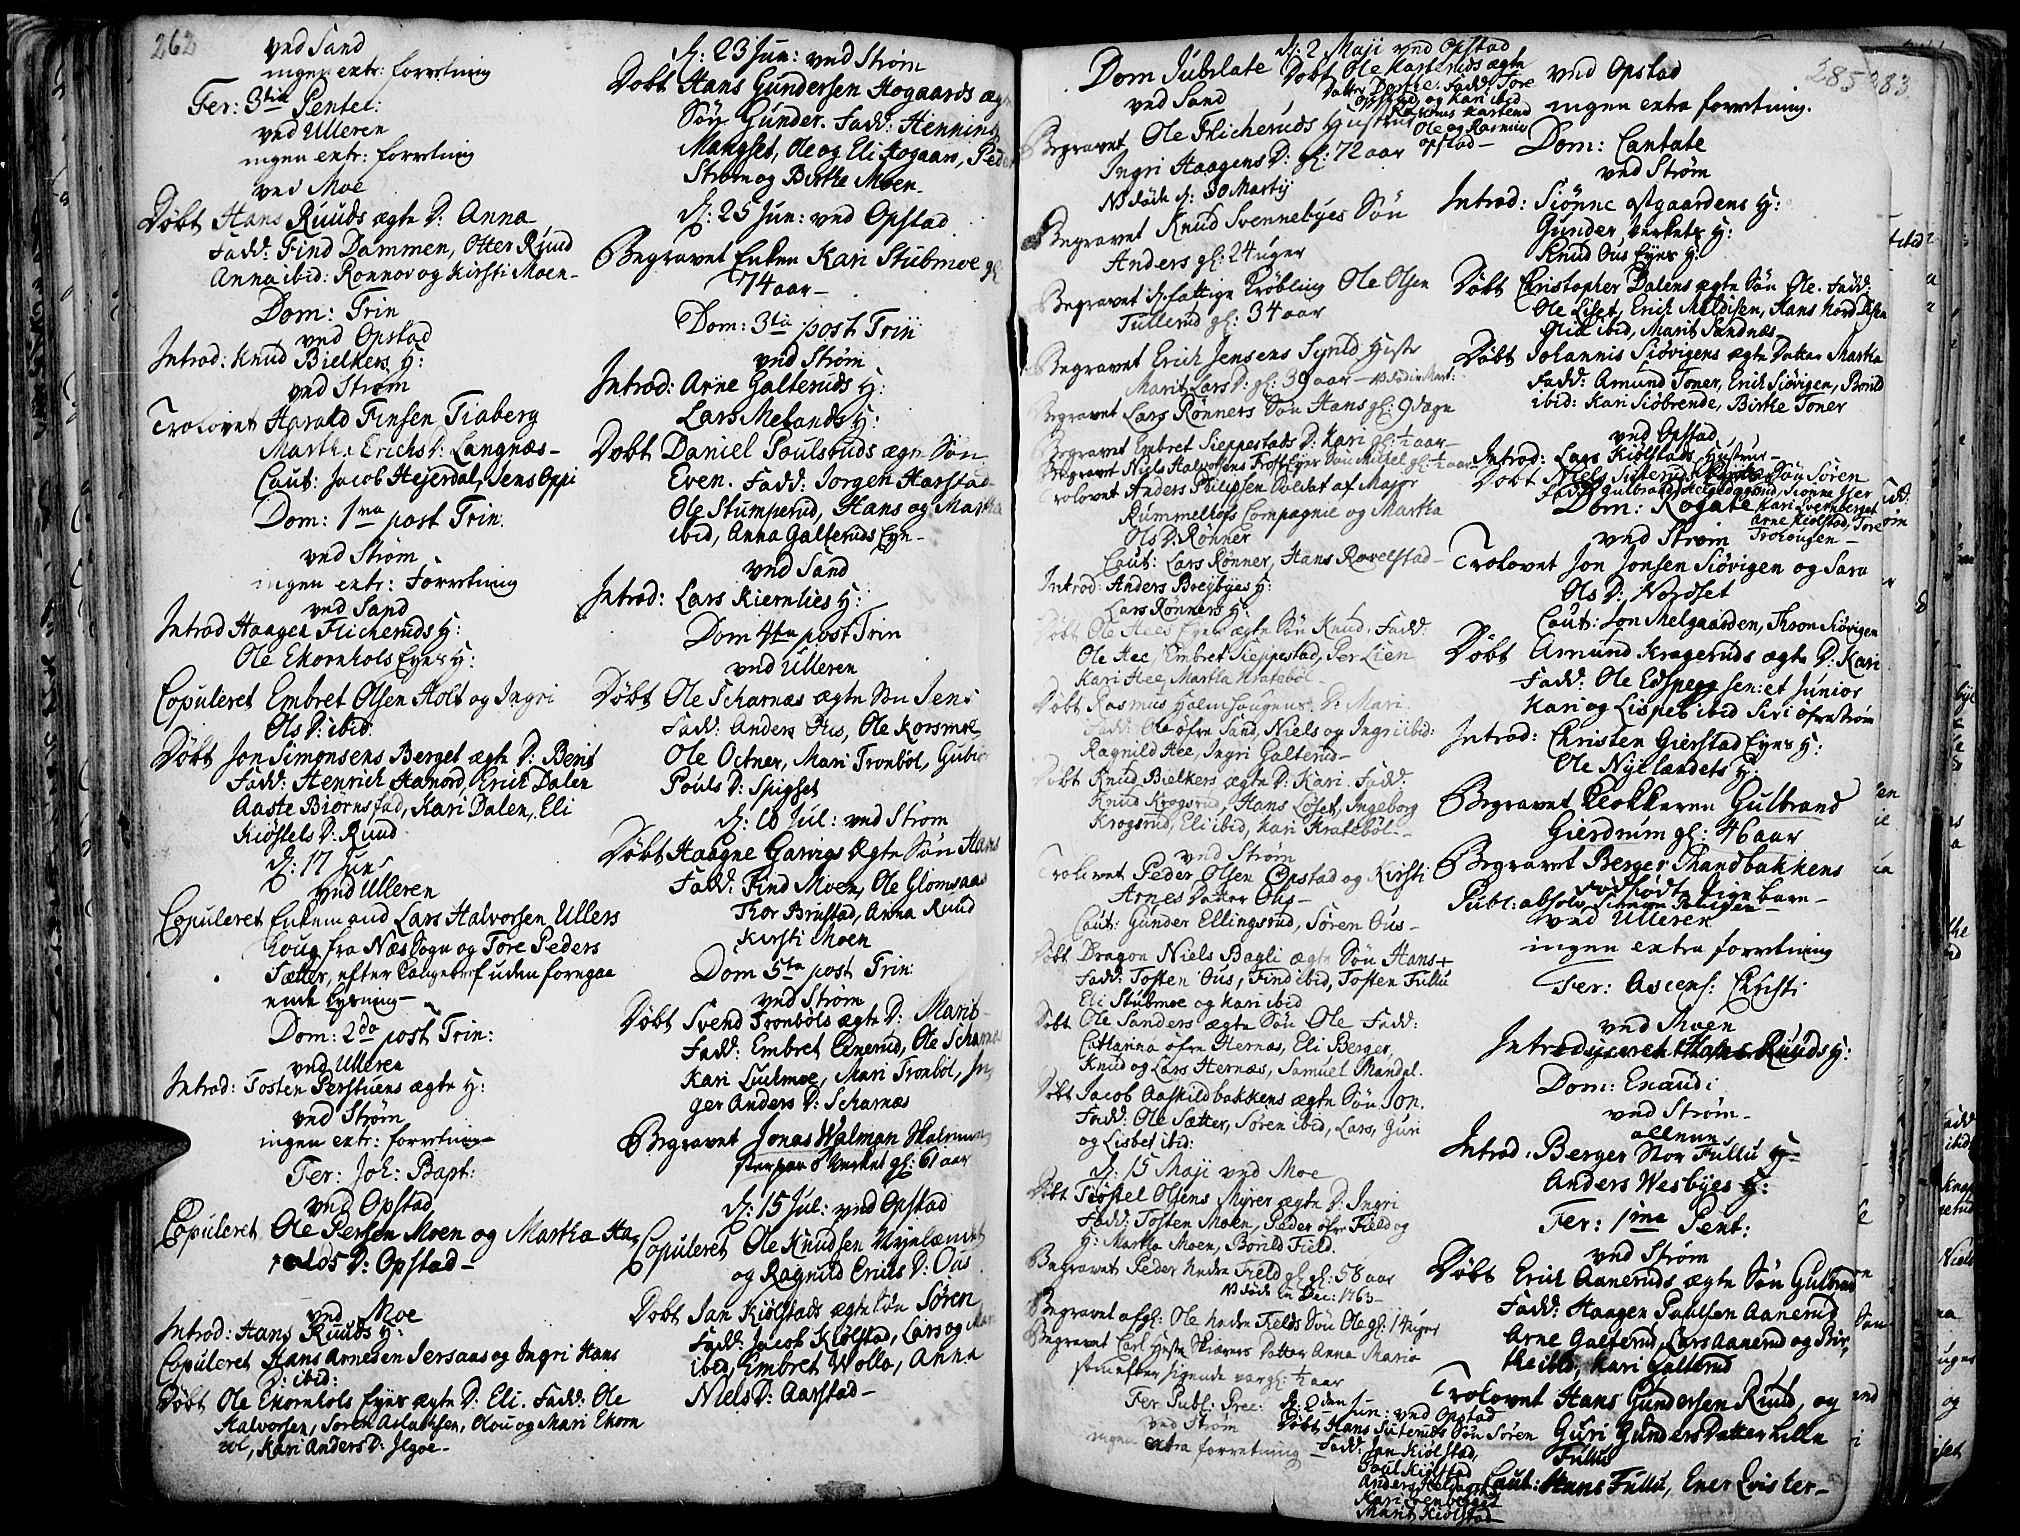 262
ved Sand
ingen extr: forretning
Fer: 3tia Pentec:
ved Ulleren
ingen extr: forretning
ved Moe
Døbt Hans Ruuds ægte D: Anna
Fadd: Find Dammen, Otter Ruud
Anna ibid: Ronnov og Kirsti Moen-
Dom: Trin
ved Opstad
Introd: Knud Bielkers H:
ved Strøm
Trolovet Harald Finsen Tiaberg
Martha Erichs D: Langnæs-
Caut: Jacob Hejerdal, Jens Oppi
Dom: 1ma post Trin.
ved Strøm
ingen extr: Forretning
ved Sand
Introd Haagen Flicheruds H:
Ole Ekornhols Eyes H:
Copuleret Embret Olsen Holt og Ingri
Ols D: ibid
Døbt Jon Simonsens Berget ægte D: Berit
Fadd: Henrich Hamord, Erich Dalen
Aaste Biørnstad, Kari Dalen, Eli
Kiøstels D: Ruud
d: 17 Jun
ved Ulleren
Copuleret Enkemand Lars Halvorsen Ullers
houg fra Næs Sogn og Tore Peders
Sætter, efter uden foregaa
ende Lysning-
Dom: 2da post Trin:
ved Ulleren
Introd: Tosten Perstuens ægte H:
ved Strøm
ingen extr: forretning
Fer: Joh: Bapt:
ved Opstad
Copuleret Ole Persen Moen og Martha Ha,
ralds D: Opstad-
ved Moe
Introd: Hans Ruuds H:
Copuleret Hans Arnesen Sersaas og Ingri Hans
D: ibid:
Døbt Ole Ekornhols Eyes ægte D: Eli. Fadd: Ole
Halvorsen, Soren Aslachsen, Olou og Mari Ekorn
hol, Kari Anders D: Jlgoe-
d: 23 Jun: ved Strøm
Døbt Hans Gundersen Hogaards ægte
Søn Gunder. Fadd: Henning
Mangset, Ole og Eli Hogaar, Peder
Strøm og Birthe Moen-
d: 25 Jun: ved Opstad
Begravet Enken Kari Stubmoe gl:
74 aar-
Dom: 3tia post Trin
ved Strøm
Introd: Arne Galteruds H:
Lars Melands H:
Døbt Daniel Poulsruds ægte Søn
Even. Fadd: Jorgen Harstad
Ole Stumperud, Hans og Martha
ibid, Anna Galteruds Eye-
ved Sand
Introd: Lars Kiernlies H:
Dom 4ta post Trin
ved Ulleren
Døbt Ole Scharnæs ægte Søn Jens
Fadd: Anders Hus, Ole Korsmoe
Ole Octner, Mari Tronbøl, Gubior
Pouls D: Spigset
d: 10 Jul: ved Strøm
Døbt Haagne Garvigs ægte Søn Hans
Fadd: Find Moen, Ole Glomsaas
Thor Brustad, Anna Ruud
Kirsti Moen
Dom 5ta post Trin:
ved Strøm
Døbt Svend Tronbøls ægte D: Marit-
Fadd: Embret Enerud, Ole Scharnæs
Kari Luulmoe, Mari Tronbøl, In
ger Anders D: Scharnæs
Begravet Jonas Walman
ved Verket gl: 61 aar
d: 15 Jul: ved Opstad
Copuleret Ole Knudsen Nyelændet
og Ragnild Erichs D: Ous
Døbt Jan Kiølstads ægte Søn Søren
Fadd: Jacob Kiølstad, Lars og Mari
ibid, Embret Wolla, Anna
Niels D: Aarstad-
Dom Jubilate
ved Sand
d: 2 Maji ved Opstad
Døbt Ole Karteruds ægte
Datter Dorthe. Fadd: Tore
Opstad og Kari ibid
Rasmus Karterud
Ole og Rasmus
Opstad-
Begravet Ole Flicheruds Hustrue
Ingri Haagens D: gl: 72 aar
NB døde d: 30 Martij
Begravet Knud Svennebyes Søn
Anders gl: 24 uger
Begravet d. fattige Krøbling Ole Olsen
Tullerud gl: 34 aar
Begravet Erich Jensens Hustr
Marit Lars D: gl: 39 aar- NB døde in Mart:
Begravet Lars Rønners Søn Hans gl: 9 dage
Begravet Embret Sieppestads D: Kari gl: ½ aar-
Begravet Niels Halvorsens Eyes Søn Michel gl: ½ aar-
Trolovet Anders Philipsen Soldat af Major
Rummelhofs Compagnie og Martha
Ols D: Rønner
Caut: Lars Rønner, Hans Ravelstad-
Introd: Anders Breybyes H:
Lars Rønners H:
Døbt Ole Hees Eyes ægte Søn Knud. Fadd:
Ole Hee, Embret Sieppestad, Per Lien
Kari Hee, Martha Kratebøl-
Døbt Rasmus Holmshaugens D: Mari.
Fadd: Ole øfre Sand, Niels og Ingri ibid:
Ragnild Hee, Ingri Galterud-
Døbt Knud Bielkers ægte D: Kari. Fadd:
Knud Krogsrud, Hans Løset, Ingeborg
Krogsrud, Eli ibid, Kari Kratebøl-
ved Strøm
Trolovet Peder Olsen Opstad og Kirsti
Arnes Datter Ous-
Caut: Gunder Ellingsrud, Søren Ous-
Døbt Dragon Niels Bagli ægte Søn Hans+
Fadd: Tosten Ous, Find ibid, Tosten Fullu
Eli Stubmoe og Kari ibid
Døbt Ole Sanders ægte Søn Ole Fadd:
Catharina øfre Hernæs, Eli Berger,
Knud og Lars Hernæs, Samuel Mandal.
Døbt Jacob Aaskildbakkens ægte Søn Jon.
Fadd: Ole Sætter, Søren ibid, Lars, Guri
og Lisbet ibid:
d: 15 Maji ved Moe
Døbt Tiøstel Olsens Myrer ægte D: Ingri
Fadd: Tosten Moen, Peder øfr Field og
H: Martha Moen, Borild Field.
Begravet Peder Nedre Field gl: 58 aar
NB døde in Dec: 1763-
Begravet afg: Ole Nedre Fields Søn Ole gl: 14 uger
Begravet Carl Datter Anna Maria
som efter sigende var gl: ½ aar
Fer Publ: Prec:
ved Strøm
ingen extra forretning-
d: 2den Jun: ved Opstad
Døbt Hans Suteruds Søn Søren
Fadd: Jan Kiølstad,
Poul Kiølstad
Anders
Kari Svenberget
Marit Kiølstad-
285 283
ved Opstad
ingen extra forretning.
Dom: Cantate
ved Strøm
Introd: Siønne Astgaardens H:
Gunder Verkets H:
Knud Ous Eyes H:
Døbt Christopher Dalens ægte Søn Ole. Fadd:
Ole Liset, Erich Meldisen, Hans Nord
Gua ibid, Marit Sandnæs
Døbt Johannis Siøvigens ægte Datter Martha
Fadd: Amund Toner, Erich Siøvigen, Borild
ibid: Kari Siøbrende, Birthe Toner
ved Opstad
Introd: Lars Kiølstads Hustrue-
Døbt Niels Suteruds Søn Søren
Fadd: Gulbrand
Kari Svenberget
Arne Kiølstad, Tore
Dom: Rogate
ved Strøm
Trolovet Jon Jonsen Siøvigen og Sara
Ols D: Nordset
Caut: Jon Melgaarden, Thron Siøvigen
Døbt Amund Krageruds ægte D: Kari
Fadd: Ole Edspegg sen: et Junior
Kari og Lispet ibid Siri øfre Strøm
Introd: Christen Gierstad Eyes H:
Ole Nyllandets H:
Begravet Klokkeren Gulbrand
Gierdrum gl: 46 aar
Begravet Berger Strandbakkens
dødfødte Pigebarn-
Publ: absolv:
ved Ulleren
ingen extra forretning
Fer: Ascens: Christi
ved Moen
Introduceret Hans Ruuds H:
Dom: Exaudi
ved Strøm-
allene
Introd: Berger Stor Fullu H-
Anders Wesbyes H:
Fer: 1ma Pent:
ved Strøm
Døbt Erich Aaneruds ægte Søn Gulbrand
Fadd: Haagen Paulsen Aanerud
Arne Galterud, Lars Aanerud og Bir,
the ibid, Kari Galterud
Trolovet Hans Gundersen Ruud, og
Guri Gunders Datter Lille
Fullu
Caut: Hans Fullu, Ener Qvister-